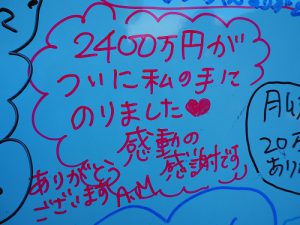 2400万円が
ついに私の手に
のりました♥
感動の
感謝です
ありがとう
ございます A.M
月収
20万
あり